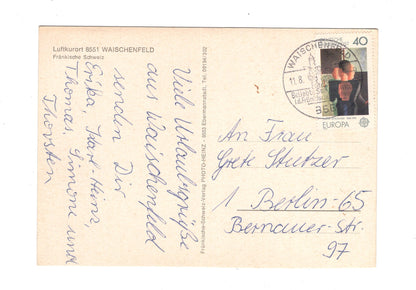 Luftkurort 8551 WAISCHENFELD
Fränkische Schweiz
Viele Urlaubsgrüße
aus Waischenfeld
senden Dir
Erika, Karl-Heinz,
Thomas, Simone und
Thorsten
Fränkische-Schweiz-Verlag PHOTO-HEINZ - 8553 Ebermannstadt, Tel. 09194/202
WAISCHENFELD
11.8.
DEUTSCHE
40
EUROPA
An Frau
Grete Stutzer
1 Berlin-65
Bernauer-Str.
97